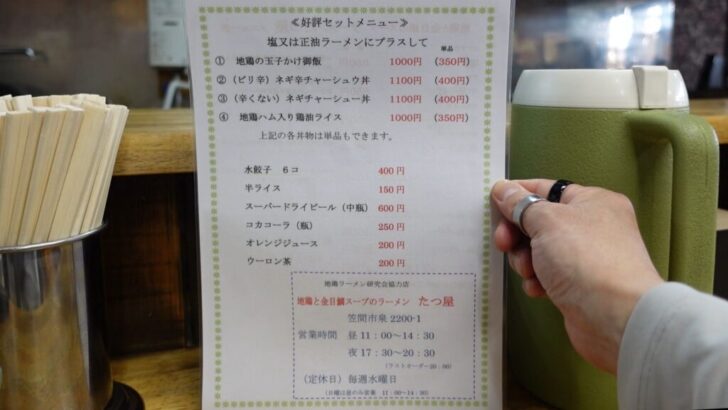 ≪好評セットメニュー≫
塩又は正油ラーメンにプラスして 単品
① 地鶏の玉子かけ御飯 1000円 (350円)
② (ピリ辛) ネギ辛チャーシュウ丼 1100円 (400円)
③ (辛くない) ネギチャーシュー丼 1100円 (400円)
④ 地鶏ハム入り鶏油ライス 1000円 (350円)
上記の各丼物は単品もできます。
水餃子 6コ 400円
半ライス 150円
スーパードライビール (中瓶) 600円
コカコーラ (瓶) 250円
オレンジジュース 200円
ウーロン茶 200円
地鶏ラーメン研究会協力店
地鶏と金目鯛スープのラーメン たつ屋
笠間市泉 2200-1
営業時間 昼 11:00~14:30
夜 17:30~20:30
(ラストオーダー20:00)
(定休日) 毎週水曜日
(日曜は昼のみ営業 11:00~14:30)